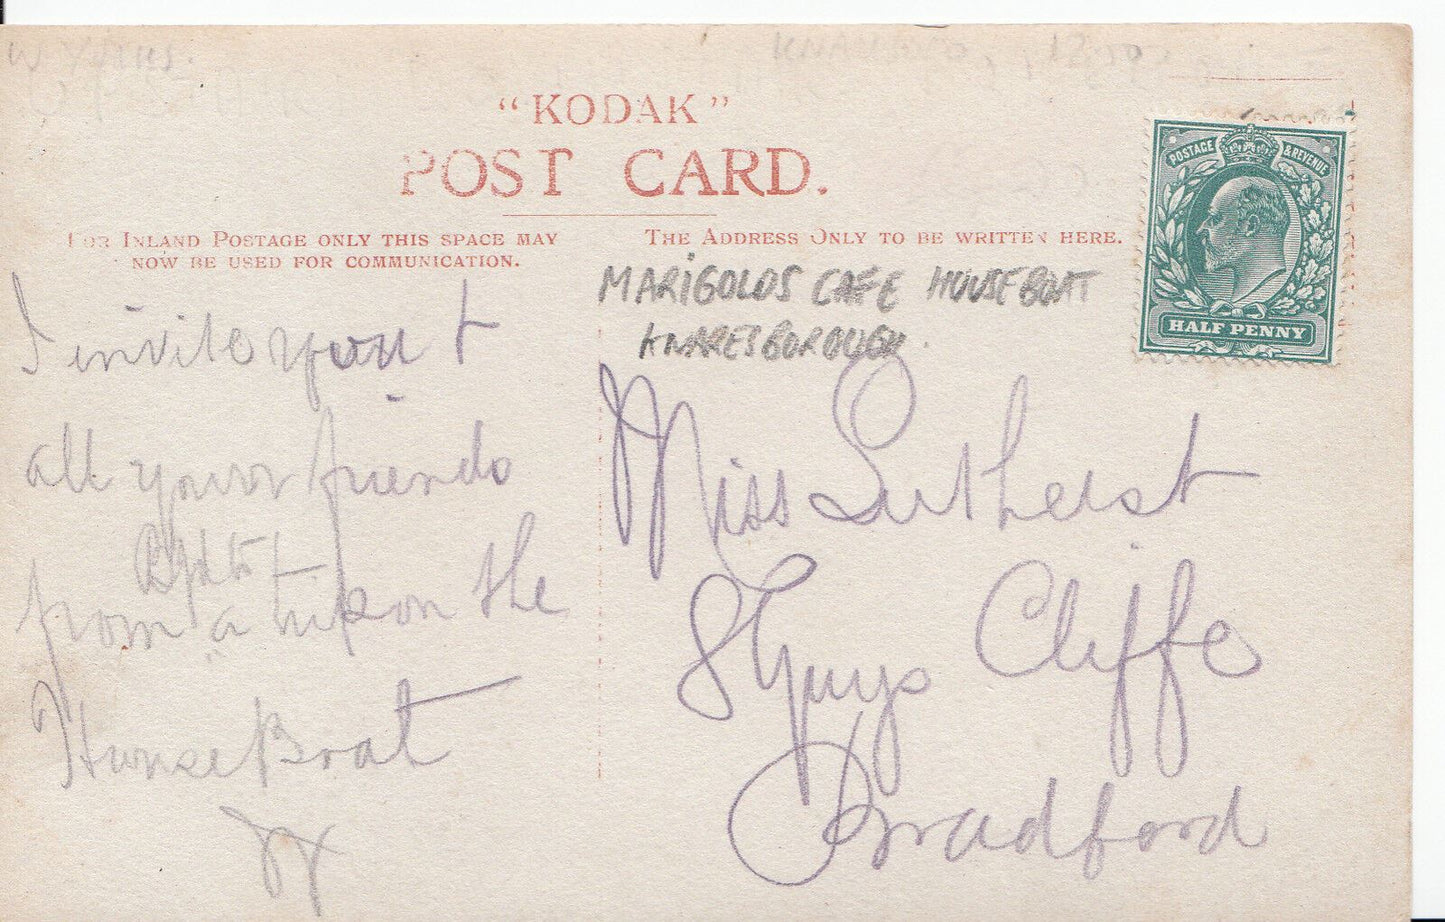 W YORKS.
KNARESBORO, 12.50
"KODAK"
POST CARD.
FOR INLAND POSTAGE ONLY THIS SPACE MAY
NOW BE USED FOR COMMUNICATION.
THE ADDRESS ONLY TO BE WRITTEN HERE.
POSTAGE & REVENUE
HALF PENNY
MARIGOLDS CAFE HOUSEBOAT
KNARESBOROUGH.
I invite you &
all your friends
to
from a trip on the
House Boat
Miss Lutherst
Cliffe
Bradford